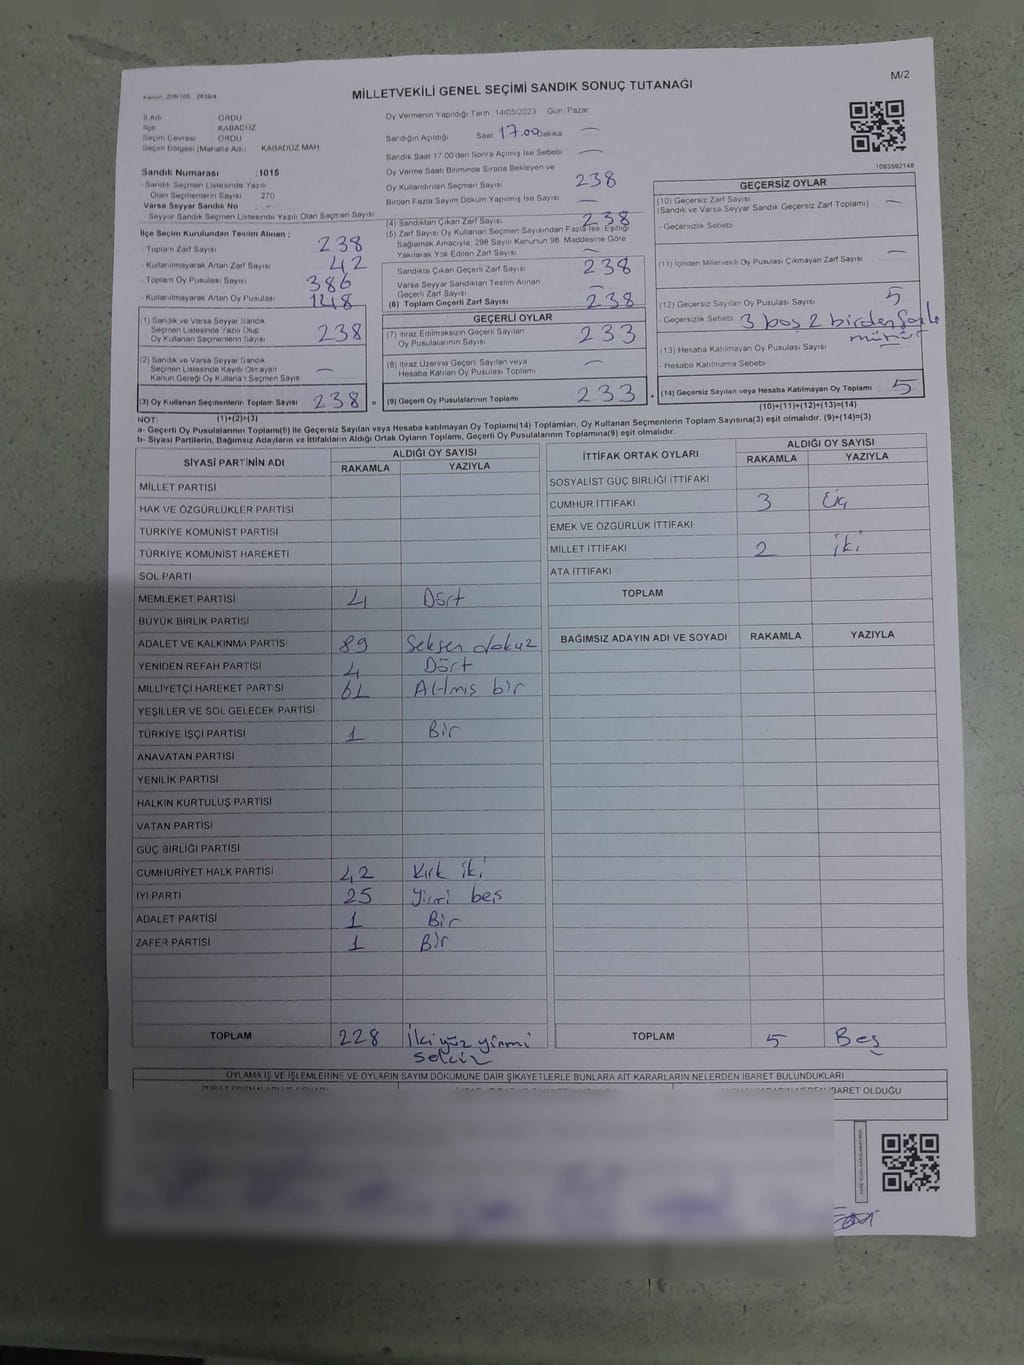 MİLLETVEKİLİ GENEL SEÇİMİ SANDIK SONUÇ TUTANAĞI
M/2
İl Adı ORDU
İlçe KABADÜZ
Seçim Çevresi ORDU
Seçim Bölgesi (Mahalle Adı) KABADÜZ MAH
Sandık Numarası :1015
Sandık Seçmen Listesinde Yazılı
Olan Seçmenlerin Sayısı 270
Varsa Seyyar Sandık No : -
Seyyar Sandık Seçmen Listesinde Yazılı Olan Seçmen Sayısı
İlçe Seçim Kurulundan Teslim Alınan ;
- Toplam Zarf Sayısı 238
- Kullanılmayarak Artan Zarf Sayısı 42
- Toplam Oy Pusulası Sayısı 386
- Kullanılmayarak Artan Oy Pusulası 148
(1) Sandık ve Varsa Seyyar Sandık
Seçmen Listesinde Yazılı Olup
Oy Kullanan Seçmenlerin Sayısı 238
(2) Sandık ve Varsa Seyyar Sandık
Seçmen Listesinde Kayıtlı Olmayan
Kanun Gereği Oy Kullanan Seçmen Sayısı —
(3) Oy Kullanan Seçmenlerin Toplam Sayısı 238 =
(1)+(2)=(3)
Oy Vermenin Yapıldığı Tarih :14/05/2023 Gün: Pazar
Sandığın Açıldığı Saat 17.00 Dakika —
Sandık Saat 17:00'den Sonra Açılmış İse Sebebi —
Oy Verme Saati Bitiminde Sırada Bekleyen ve
Oy Kullandırılan Seçmen Sayısı 238
Birden Fazla Sayım Döküm Yapılmış İse Sayısı —
(4) Sandıktan Çıkan Zarf Sayısı 238
(5) Zarf Sayısı Oy Kullanan Seçmen Sayısından Fazla İse, Eşitliği
Sağlamak Amacıyla, 298 Sayılı Kanunun 98. Maddesine Göre
Yakılarak Yok Edilen Zarf Sayısı —
Sandıkta Çıkan Geçerli Zarf Sayısı 238
Varsa Seyyar Sandıktan Teslim Alınan
Geçerli Zarf Sayısı —
(6) Toplam Geçerli Zarf Sayısı 238
GEÇERLİ OYLAR
(7) İtiraz Edilmeksizin Geçerli Sayılan
Oy Pusulalarının Sayısı 233
(8) İtiraz Üzerine Geçerli Sayılan veya
Hesaba Katılan Oy Pusulası Toplamı —
(9) Geçerli Oy Pusulalarının Toplamı 233
1083592148
GEÇERSİZ OYLAR
(10) Geçersiz Zarf Sayısı
(Sandık ve Varsa Seyyar Sandık Geçersiz Zarf Toplamı) —
- Geçersizlik Sebebi
(11) İçinden Milletvekili Oy Pusulası Çıkmayan Zarf Sayısı —
(12) Geçersiz Sayılan Oy Pusulası Sayısı 5
- Geçersizlik Sebebi 3 boş 2 birden fazla
mühür
(13) Hesaba Katılmayan Oy Pusulası Sayısı
- Hesaba Katılmama Sebebi
(14) Geçersiz Sayılan veya Hesaba Katılmayan Oy Toplamı 5
(10)+(11)+(12)+(13)=(14)
NOT:
a- Geçerli Oy Pusulalarının Toplamı(9) ile Geçersiz Sayılan veya Hesaba katılmayan Oy Toplamı(14) Toplamları, Oy Kullanan Seçmenlerin Toplam Sayısına(3) eşit olmalıdır. (9)+(14)=(3)
b- Siyasi Partilerin, Bağımsız Adayların ve İttifakların Aldığı Ortak Oyların Toplamı, Geçerli Oy Pusulalarının Toplamına(9) eşit olmalıdır.
SİYASİ PARTİNİN ADI ALDIĞI OY SAYISI
RAKAMLA YAZIYLA
MİLLET PARTİSİ
HAK VE ÖZGÜRLÜKLER PARTİSİ
TÜRKİYE KOMÜNİST PARTİSİ
TÜRKİYE KOMÜNİST HAREKETİ
SOL PARTİ
MEMLEKET PARTİSİ 4 Dört
BÜYÜK BİRLİK PARTİSİ
ADALET VE KALKINMA PARTİSİ 89 Seksen dokuz
YENİDEN REFAH PARTİSİ 4 Dört
MİLLİYETÇİ HAREKET PARTİSİ 61 Altmış bir
YEŞİLLER VE SOL GELECEK PARTİSİ
TÜRKİYE İŞÇİ PARTİSİ 1 Bir
ANAVATAN PARTİSİ
YENİLİK PARTİSİ
HALKIN KURTULUŞ PARTİSİ
VATAN PARTİSİ
GÜÇ BİRLİĞİ PARTİSİ
CUMHURİYET HALK PARTİSİ 42 Kırk iki
İYİ PARTİ 25 Yirmi beş
ADALET PARTİSİ 1 Bir
ZAFER PARTİSİ 1 Bir
TOPLAM 228 İki yüz yirmi
sekiz
İTTİFAK ORTAK OYLARI ALDIĞI OY SAYISI
RAKAMLA YAZIYLA
SOSYALİST GÜÇ BİRLİĞİ İTTİFAKI
CUMHUR İTTİFAKI 3 Üç
EMEK VE ÖZGÜRLÜK İTTİFAKI
MİLLET İTTİFAKI 2 İki
ATA İTTİFAKI
TOPLAM
BAĞIMSIZ ADAYIN ADI VE SOYADI RAKAMLA YAZIYLA
TOPLAM 5 Beş
OYLAMA İŞ VE İŞLEMLERİNE VE OYLARIN SAYIM DÖKÜMÜNE DAİR ŞİKAYETLERLE BUNLARA AİT KARARLARIN NELERDEN İBARET BULUNDUKLARI
İBARET OLDUĞU